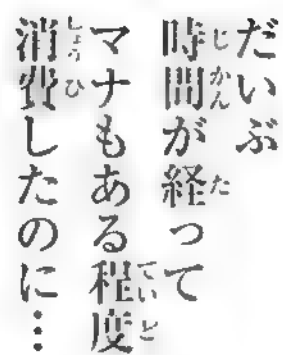 だいぶ
時間が経って
マナもある程度
消費したのに…